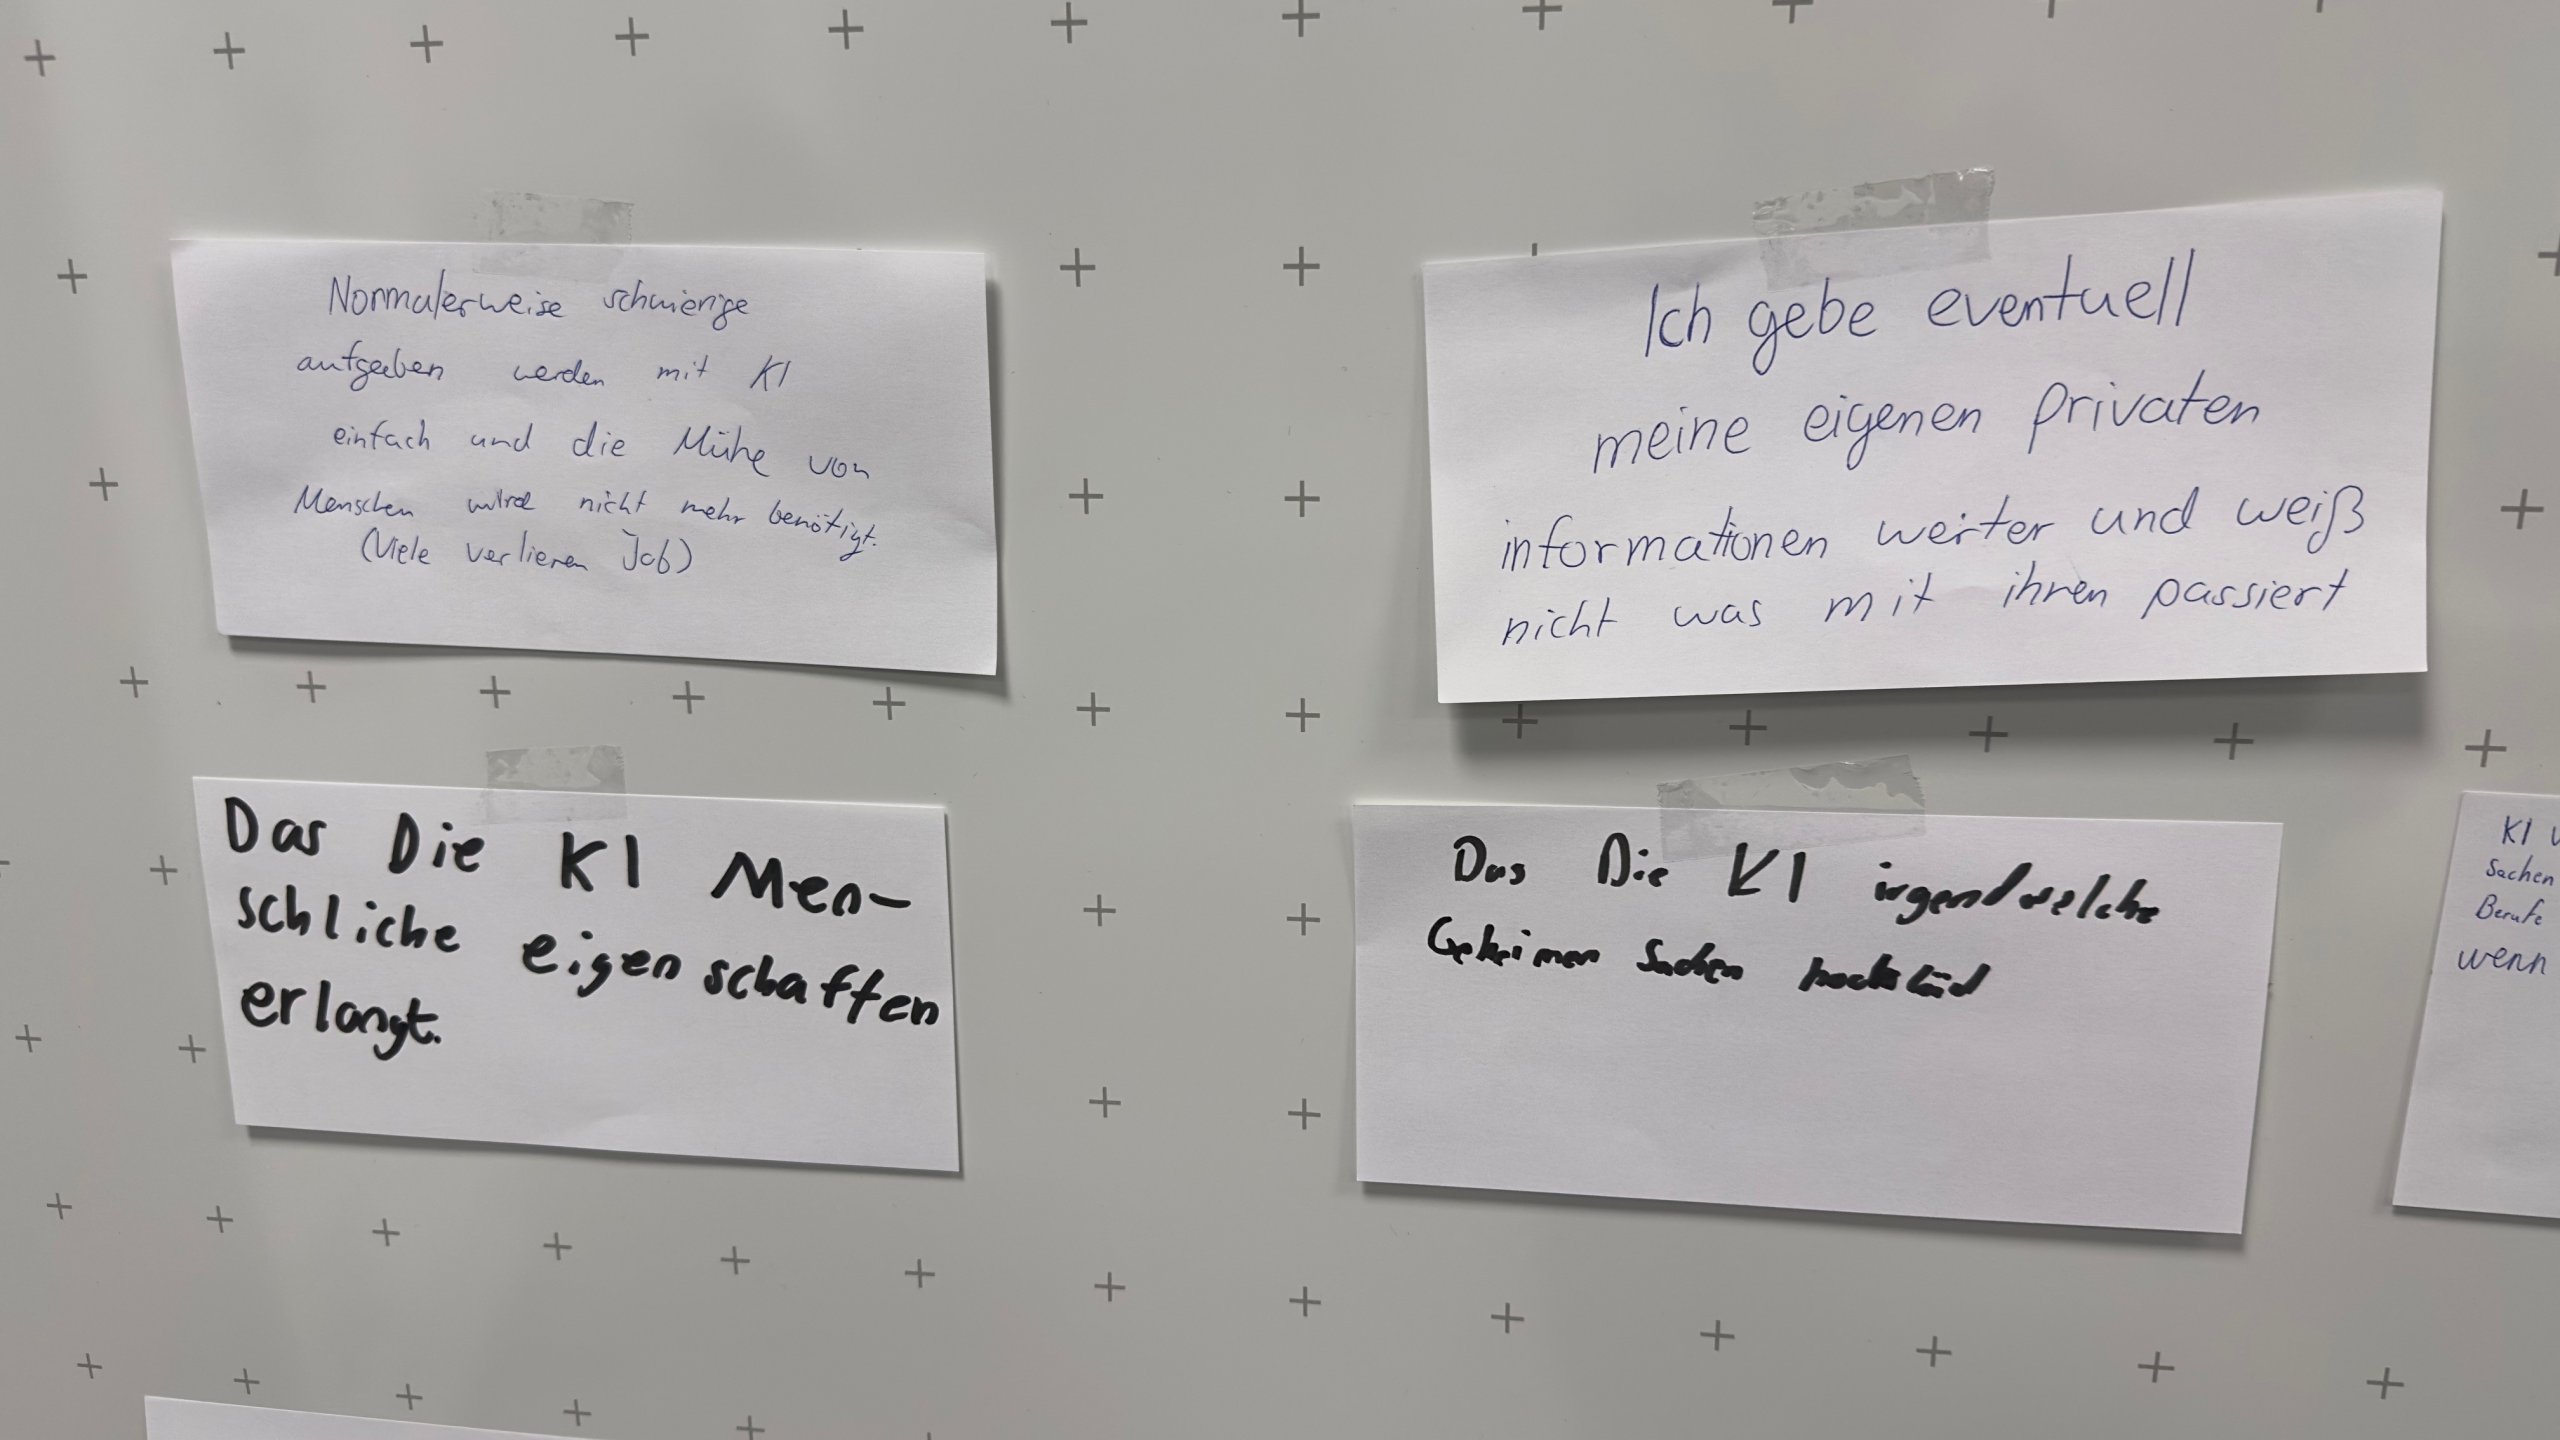 Normalerweise schwierige
aufgaben werden mit KI
einfach und die Mühe von
Menschen wird nicht mehr benötigt.
(Viele verlieren Job)
Ich gebe eventuell
meine eigenen privaten
informationen weiter und weiß
nicht was mit ihren passiert
Das Die KI Men-
schliche eigenschaften
erlangt.
Das Die KI irgendwelche
Geheimen Sachen hochläd
KI
Sachen
Berufe
wenn